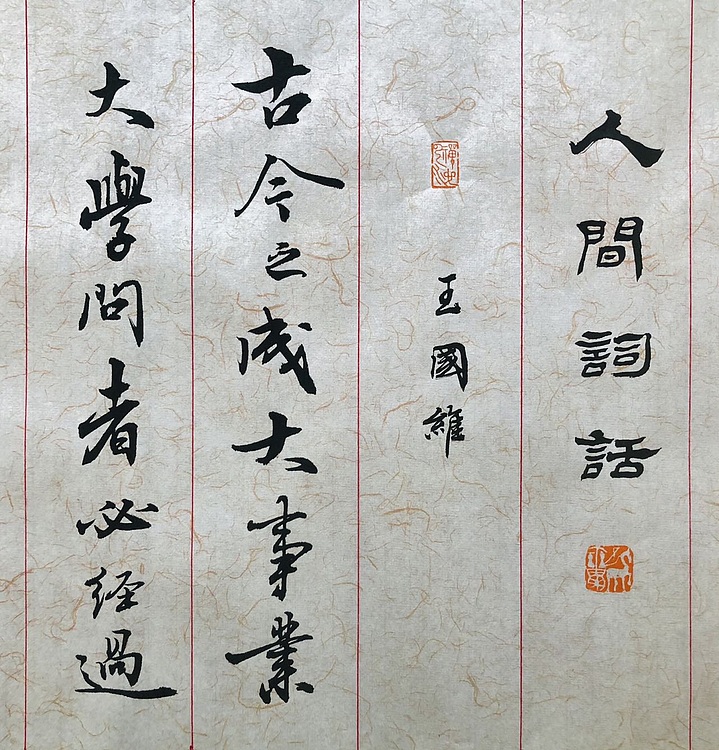 人間詞話
王國維
古今之成大事業
大學問者必經過